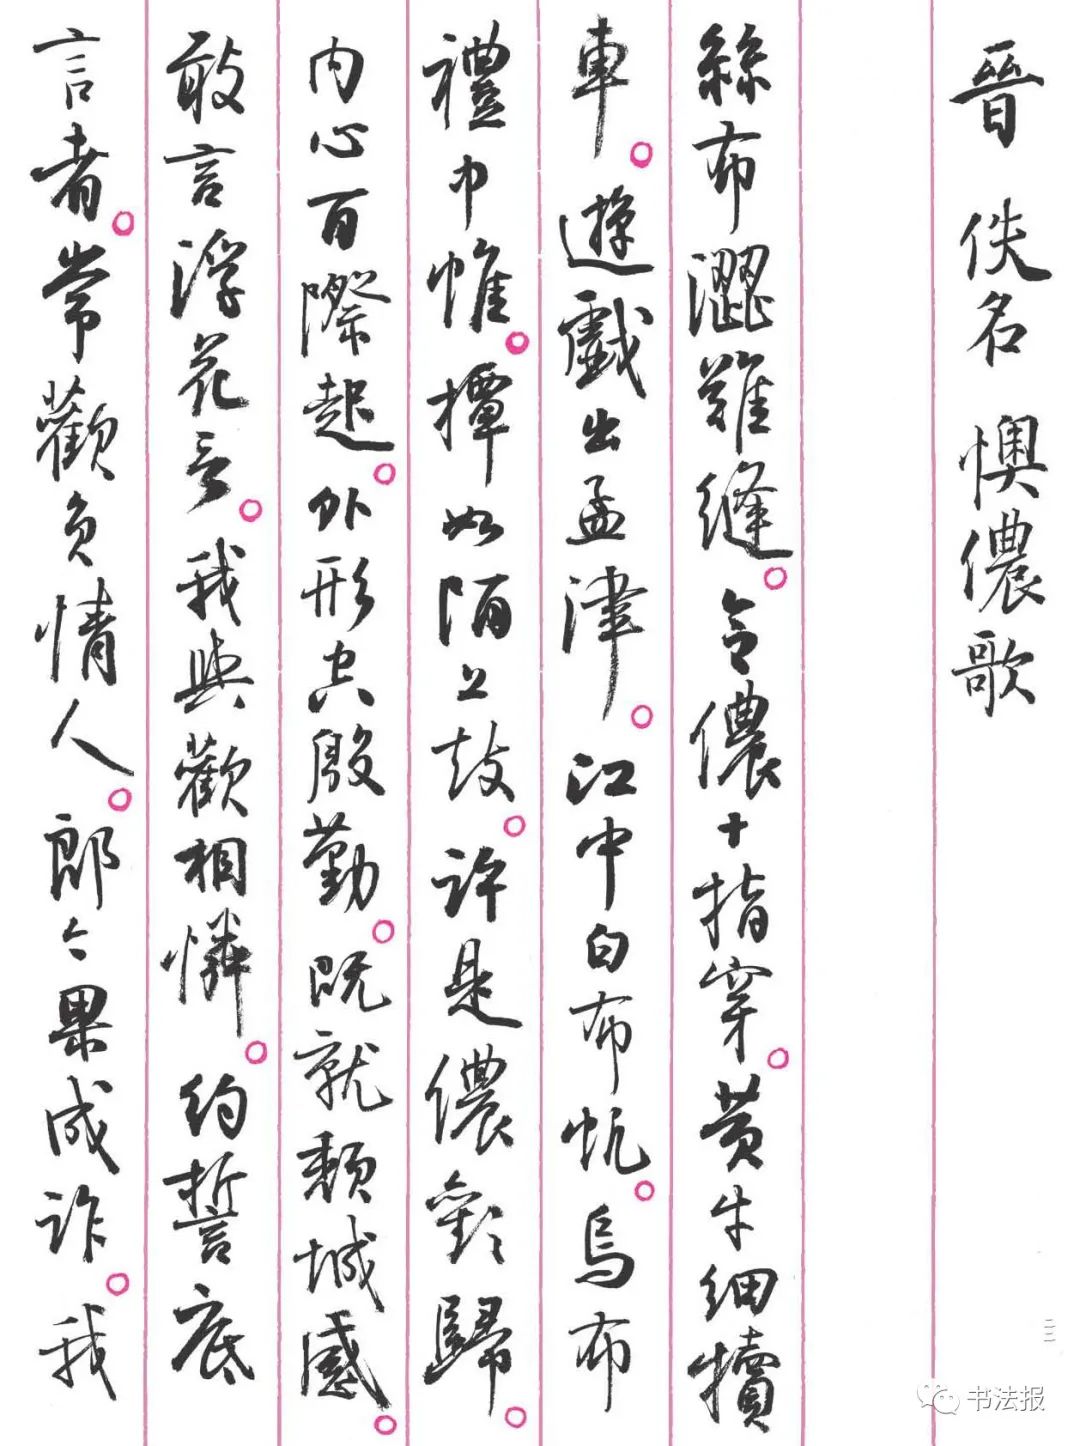 晉 佚名 懊儂歌
絲布澀難縫。令儂十指穿。黃牛細犢
車。遊戲出孟津。江中白布帆。烏布
禮中帷。撢如陌上鼓。許是儂歡歸。
内心百際起。外形空殷勤。既就頹城感。
敢言浮花言。我與歡相憐。約誓底
言者。常歡負情人。郎今果成詐。我
书法报